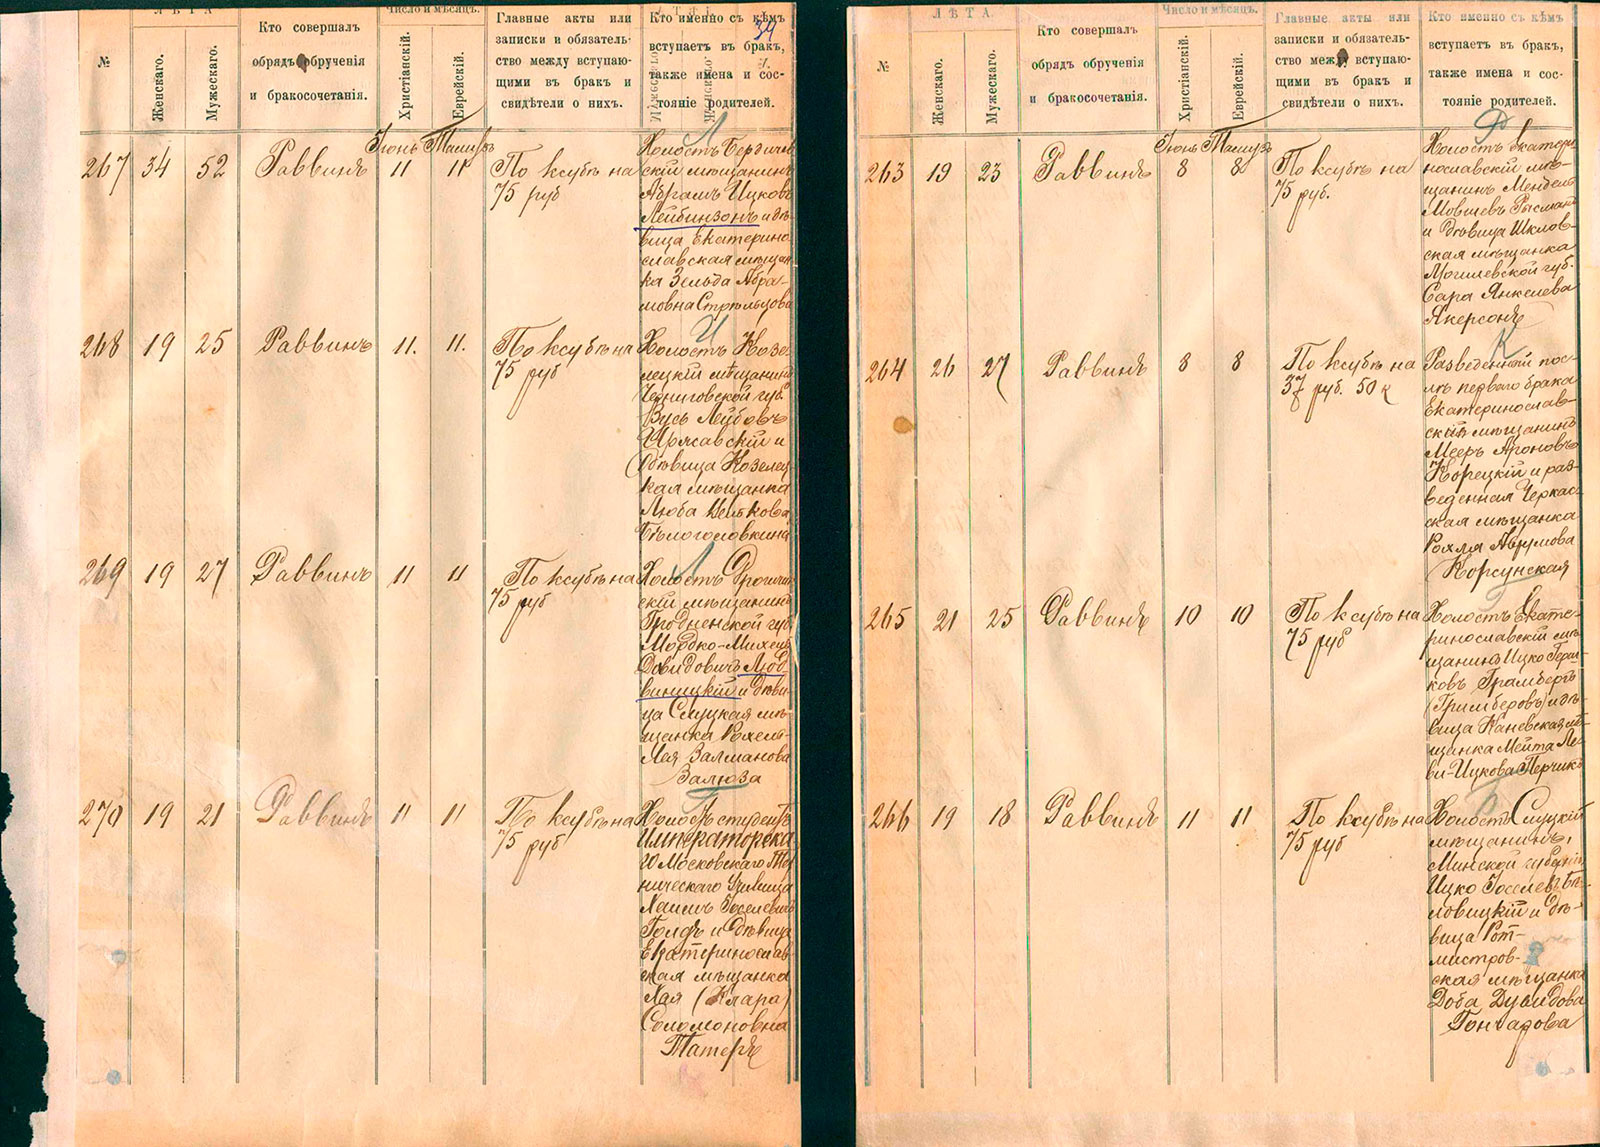 ЛѢТА
Число и мѣсяцъ.
№
Женскаго.
Мужескаго.
Кто совершалъ
обрядъ обрученія
и бракосочетанія.
Христіанскій.
Еврейскій.
Главные акты или
записки и обязатель-
ство между вступаю-
щими въ бракъ и
свидѣтели о нихъ.
Кто именно съ кѣмъ
вступаетъ въ бракъ,
также имена и сос-
тояніе родителей.
34
Іюнь Тамузъ
267 34 52 Раввинъ 11 11 По ксубѣ на
75 руб
Холостъ Бердичев
скій мѣщанинъ
Абрамъ Ицковъ
Лейбинзонъ и дѣ-
вица Екатерино
славская мѣщан
ка Зельда Абра-
мовна Стрѣльцова
268 19 25 Раввинъ 11. 11. По ксубѣ на
75 руб
Холостъ Козе-
лецкій мѣщанинъ
Черниговской губ.
Вусь Лейбовъ
и
дѣвица Козелец
кая мѣщанка
Люба
Бѣлоголовкина
269 19 27 Раввинъ 11 11 По ксубѣ на
75 руб
Холостъ Дрогичин
скій мѣщанинъ
Гродненской губ
Мордко-Михель
Давидовичъ Люб
виницкій и дѣви-
ца Слуцкая мѣ-
щанка Рохель-
Лея Залманова
Залюза
270 19 21 Раввинъ 11 11 По ксубѣ на
75 руб
Холостъ студентъ
Императорска
го Московскаго Тех
ническаго Училища
Хаимъ Іоселевичъ
Гольдъ и дѣвица
Екатеринослав
ская мѣщанка
Хая (Клара)
Соломоновна
Татеръ
ЛѢТА.
Число и мѣсяцъ.
№
Женскаго.
Мужескаго.
Кто совершалъ
обрядъ обрученія
и бракосочетанія.
Христіанскій.
Еврейскій.
Главные акты или
записки и обязатель-
ство между вступаю-
щими въ бракъ и
свидѣтели о нихъ.
Кто именно съ кѣмъ
вступаетъ въ бракъ,
также имена и сос-
тояніе родителей.
Р
Іюнь Тамузъ
263 19 23 Раввинъ 8 8 По ксубѣ на
75 руб.
Холостъ Екатери
нославскій мѣ-
щанинъ Мендель
Мовшевъ Рысманъ
и дѣвица Шклов-
ская мѣщанка
Могилевской губ.
Сара Янкелева
Якерсонъ
К
264 26 27 Раввинъ 8 8 По ксубѣ на
37 руб. 50 к
Разведенный пос-
лѣ перваго брака
Екатеринослав-
скій мѣщанинъ
Мееръ Ароновъ
Корецкій и раз-
веденная Черкас-
ская мѣщанка
Рохля Аврумова
Корсунская
265 21 25 Раввинъ 10 10 По ксубѣ на
75 руб
Холостъ Екате-
ринославскій мѣ-
щанинъ Ицко Герш-
ковъ Грамбергъ
(Гримберовъ) и дѣ-
вица Каневская мѣ-
щанка Мейта Ле-
ви-Ицкова Перчикъ
266 19 18 Раввинъ 11 11 По ксубѣ на
75 руб
Холостъ Слуцкій
мѣщанинъ,
Минской губерніи
Ицко Іоселевъ Бѣ-
ловицкій и дѣ-
вица Рот-
мистров-
ская мѣщанка
Доба Дувидова
Гончарова